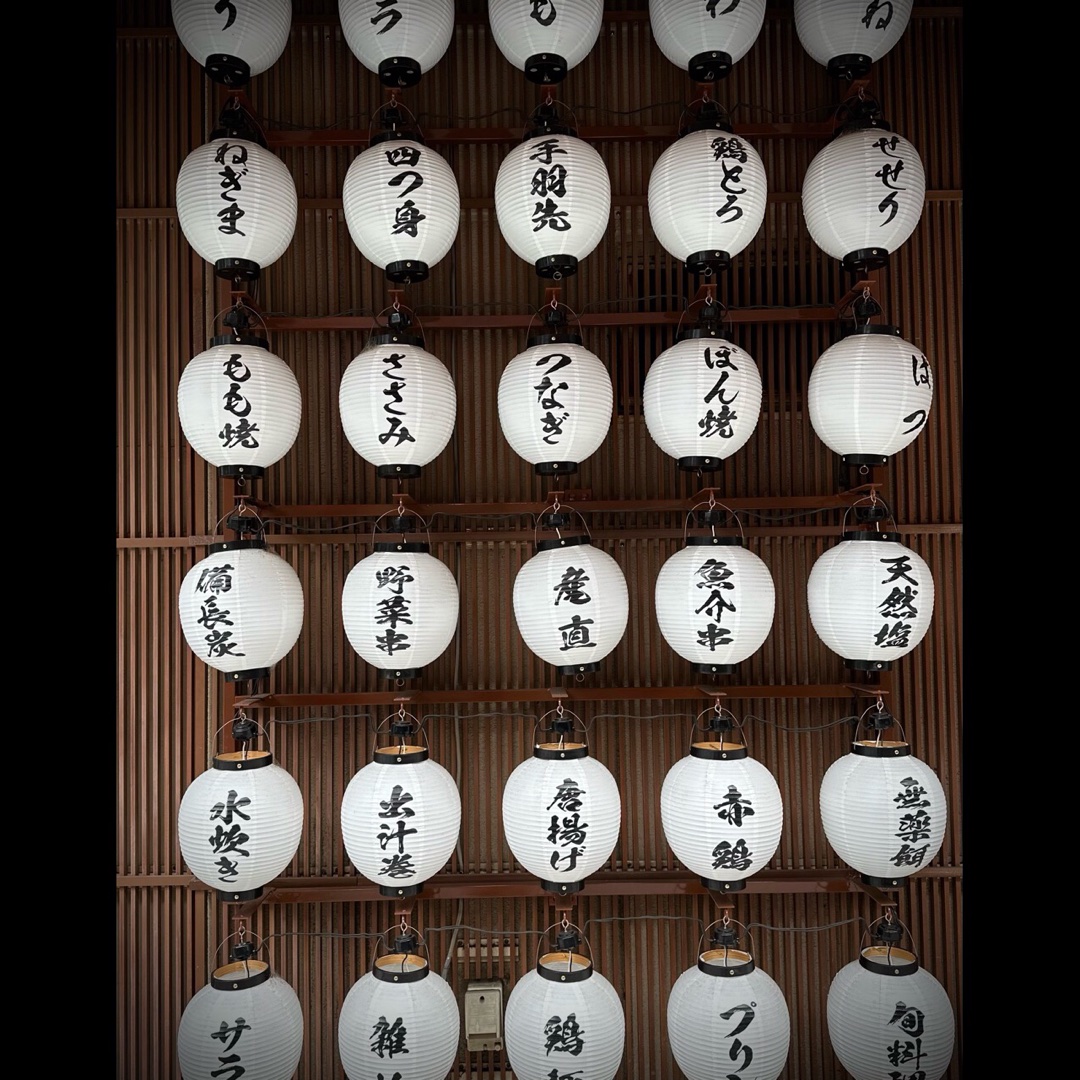 ねぎま
四つ身
手羽先
鶏とろ
せせり
もも焼
ささみ
つなぎ
ぼん焼
はつ
備長炭
野菜串
産直
魚介串
天然塩
水炊き
出汁巻
唐揚げ
赤鶏
無薬餌
サラ
雑
鶏
プリ
旬料理